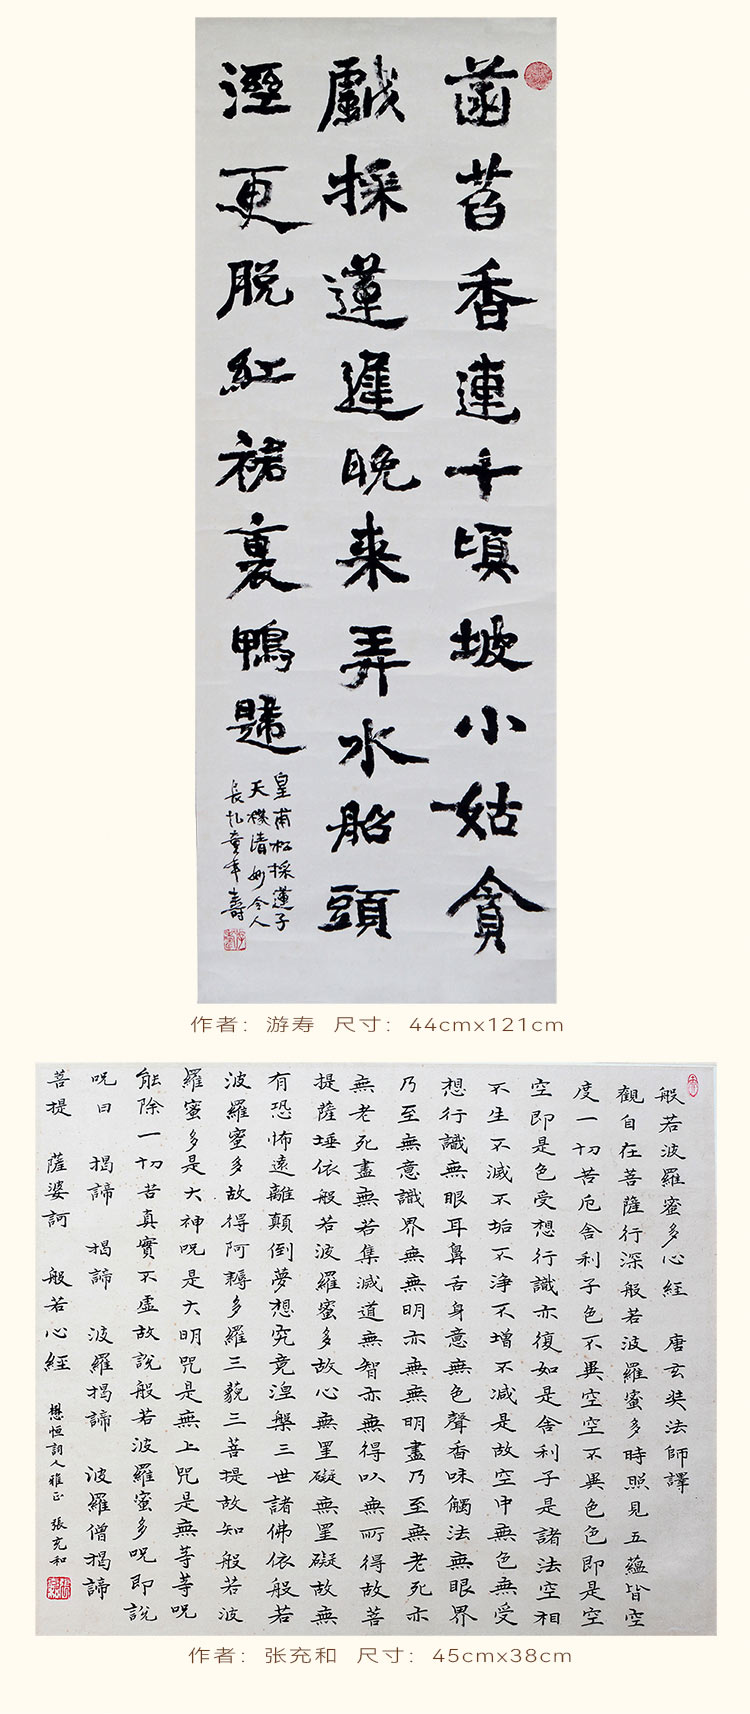 菡萏香連十頃坡小姑貪
戲採蓮遲晚来弄水船頭
溼更脱紅裙裹鴨
皇甫松採蓮子
天機清妙令人
長忆童年 壽
作者：游寿 尺寸：44cmx121cm
般若波羅蜜多心經 唐玄奘法師譯
觀自在菩薩行深般若波羅蜜多時照見五蘊皆空
度一切苦厄舍利子色不異空空不異色色即是空
空即是色受想行識亦復如是舍利子是諸法空相
不生不滅不垢不淨不增不減是故空中無色無受
想行識無眼耳鼻舌身意無色聲香味觸法無眼界
乃至無意識界無無明亦無無明盡乃至無老死亦
無老死盡無苦集滅道無智亦無得以無所得故菩
提薩埵依般若波羅蜜多故心無罣礙無罣礙故無
有恐怖遠離顛倒夢想究竟涅槃三世諸佛依般若
波羅蜜多故得阿耨多羅三藐三菩提故知般若波
羅蜜多是大神呪是大明咒是無上咒是無等等呪
能除一切苦真實不虛故說般若波羅蜜多呪即說
呪曰 揭諦 揭諦 波羅揭諦 波羅僧揭諦
菩提 薩婆訶 般若心經 懋恒詞人雅正 張充和
作者：张充和 尺寸：45cmx38cm